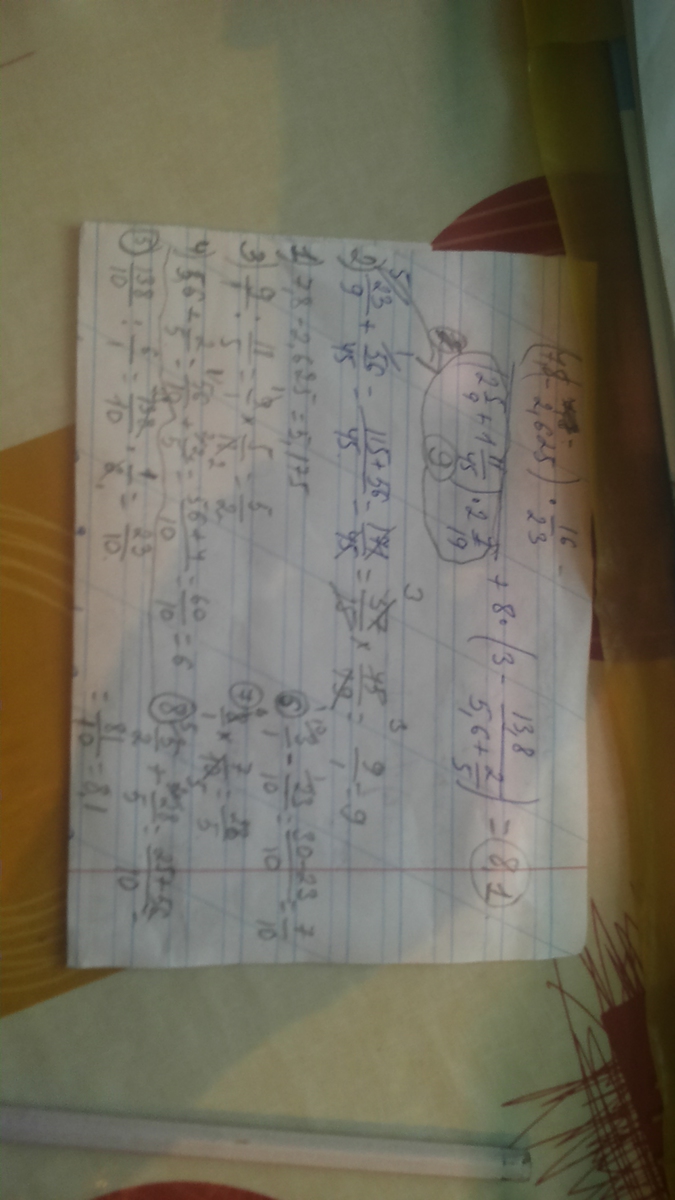 (7,8 - 2,625) · 16/23
(2 5/9 + 1 11/45) · 2 7/19 + 8 · (3 - 13,8 / (5,6 + 2/5)) = 8,1
9
2) 23/9 + 56/45 = 115+56/45 = 171/45 = 57/15 × 45/19 = 9/1 = 9
1) 7,8 - 2,625 = 5,175
4) 5,6 + 2/5 = 56/10 + 2/5 = 56+4/10 = 60/10 = 6
5) 138/10 : 6/1 = 138/10 · 1/6 = 23/10
6) 3/1 - 23/10 = 30-23/10 = 7/10
7) 8/1 × 7/10 = 28/5
8) 5/2 + 28/5 =
= 81/10 = 8,1